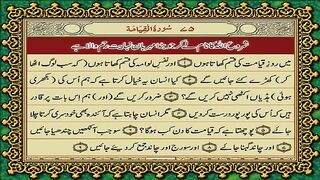 ۷۵ سورۃ القیامۃ
شروع اللہ کا نام لے کر جو بڑا مہربان نہایت رحم والا ہے
میں روز قیامت کی قسم کھاتا ہوں اور نفس لوامہ کی قسم کھاتا ہوں کہ سب لوگ اٹھا
کر کھڑے کئے جائیں گے کیا انسان یہ خیال کرتا ہے کہ ہم اس کی بکھری
ہوئی ہڈیاں اکٹھی نہیں کریں گے؟ ضرور کریں گے اور ہم اس بات پر قادر
ہیں کہ اس کی پور پور درست کردیں مگر انسان چاہتا ہے کہ آئندہ بھی خودسری کرتا چلا
جائے پوچھتا ہے کہ قیامت کا دن کب ہوگا؟ سو جب آنکھیں چندھیا جائیں
اور چاند گہنا جائے اور سورج اور چاند جمع کردیئے جائیں